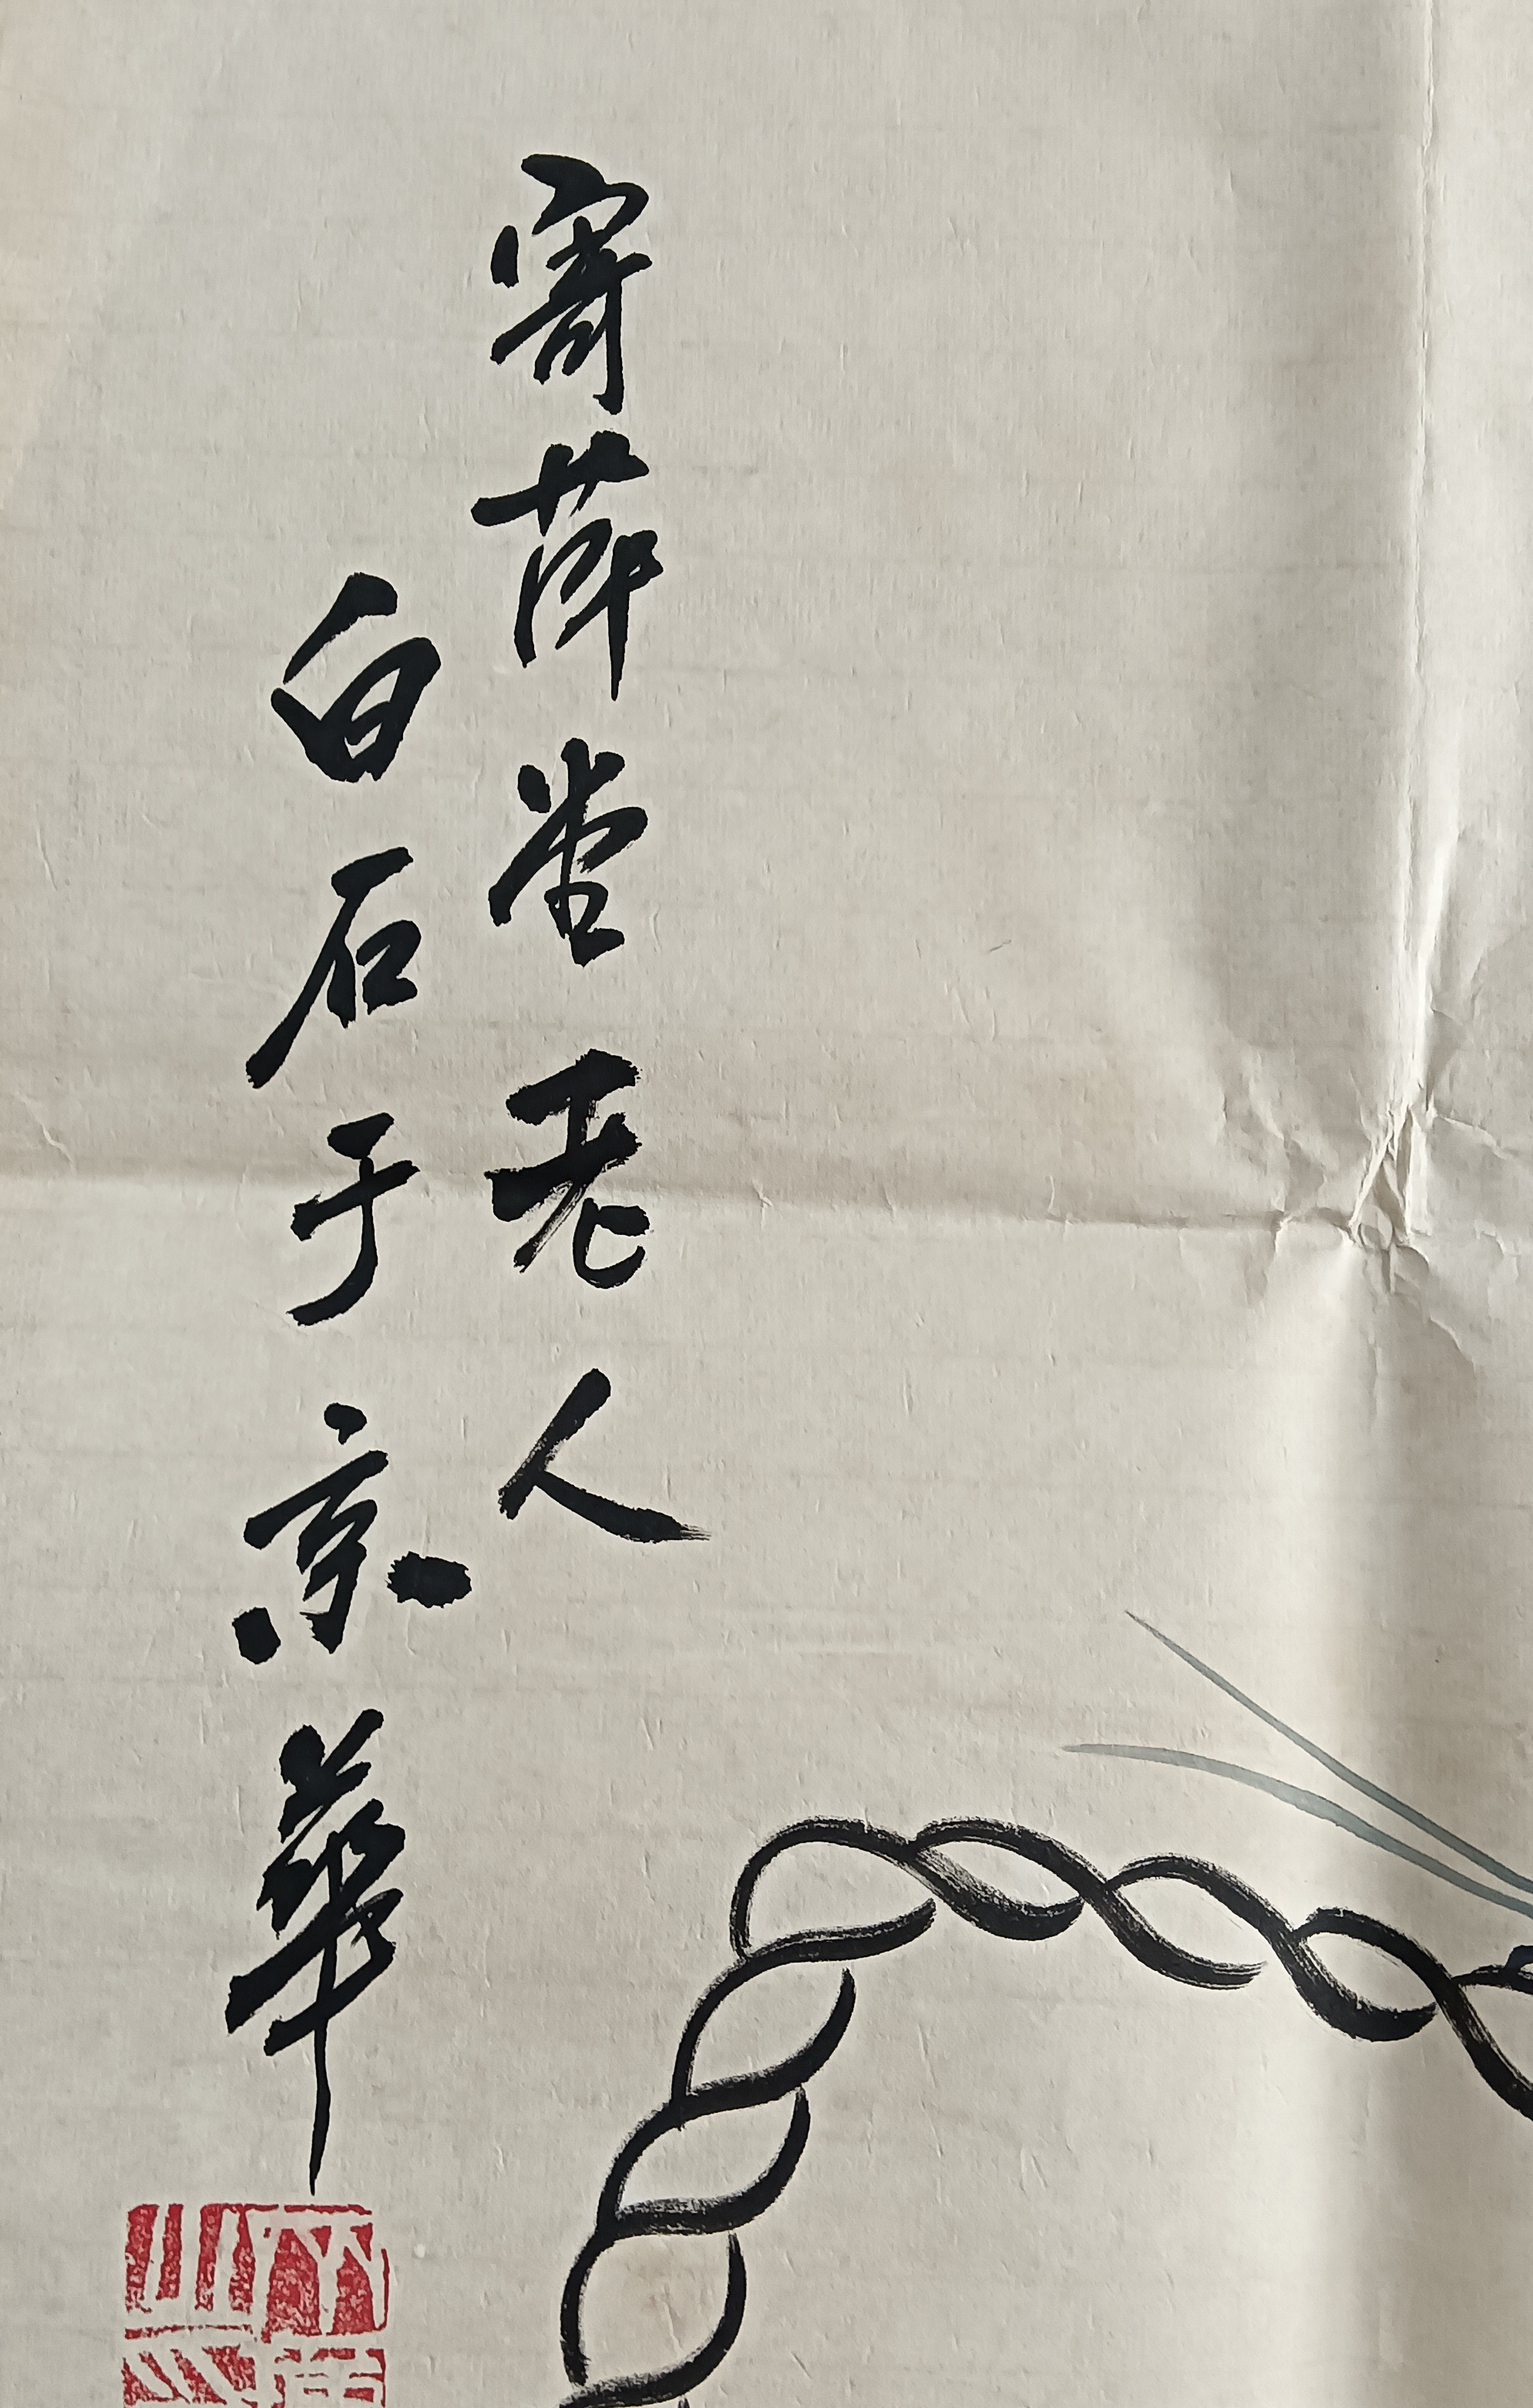 寄萍堂老人
白石于京華